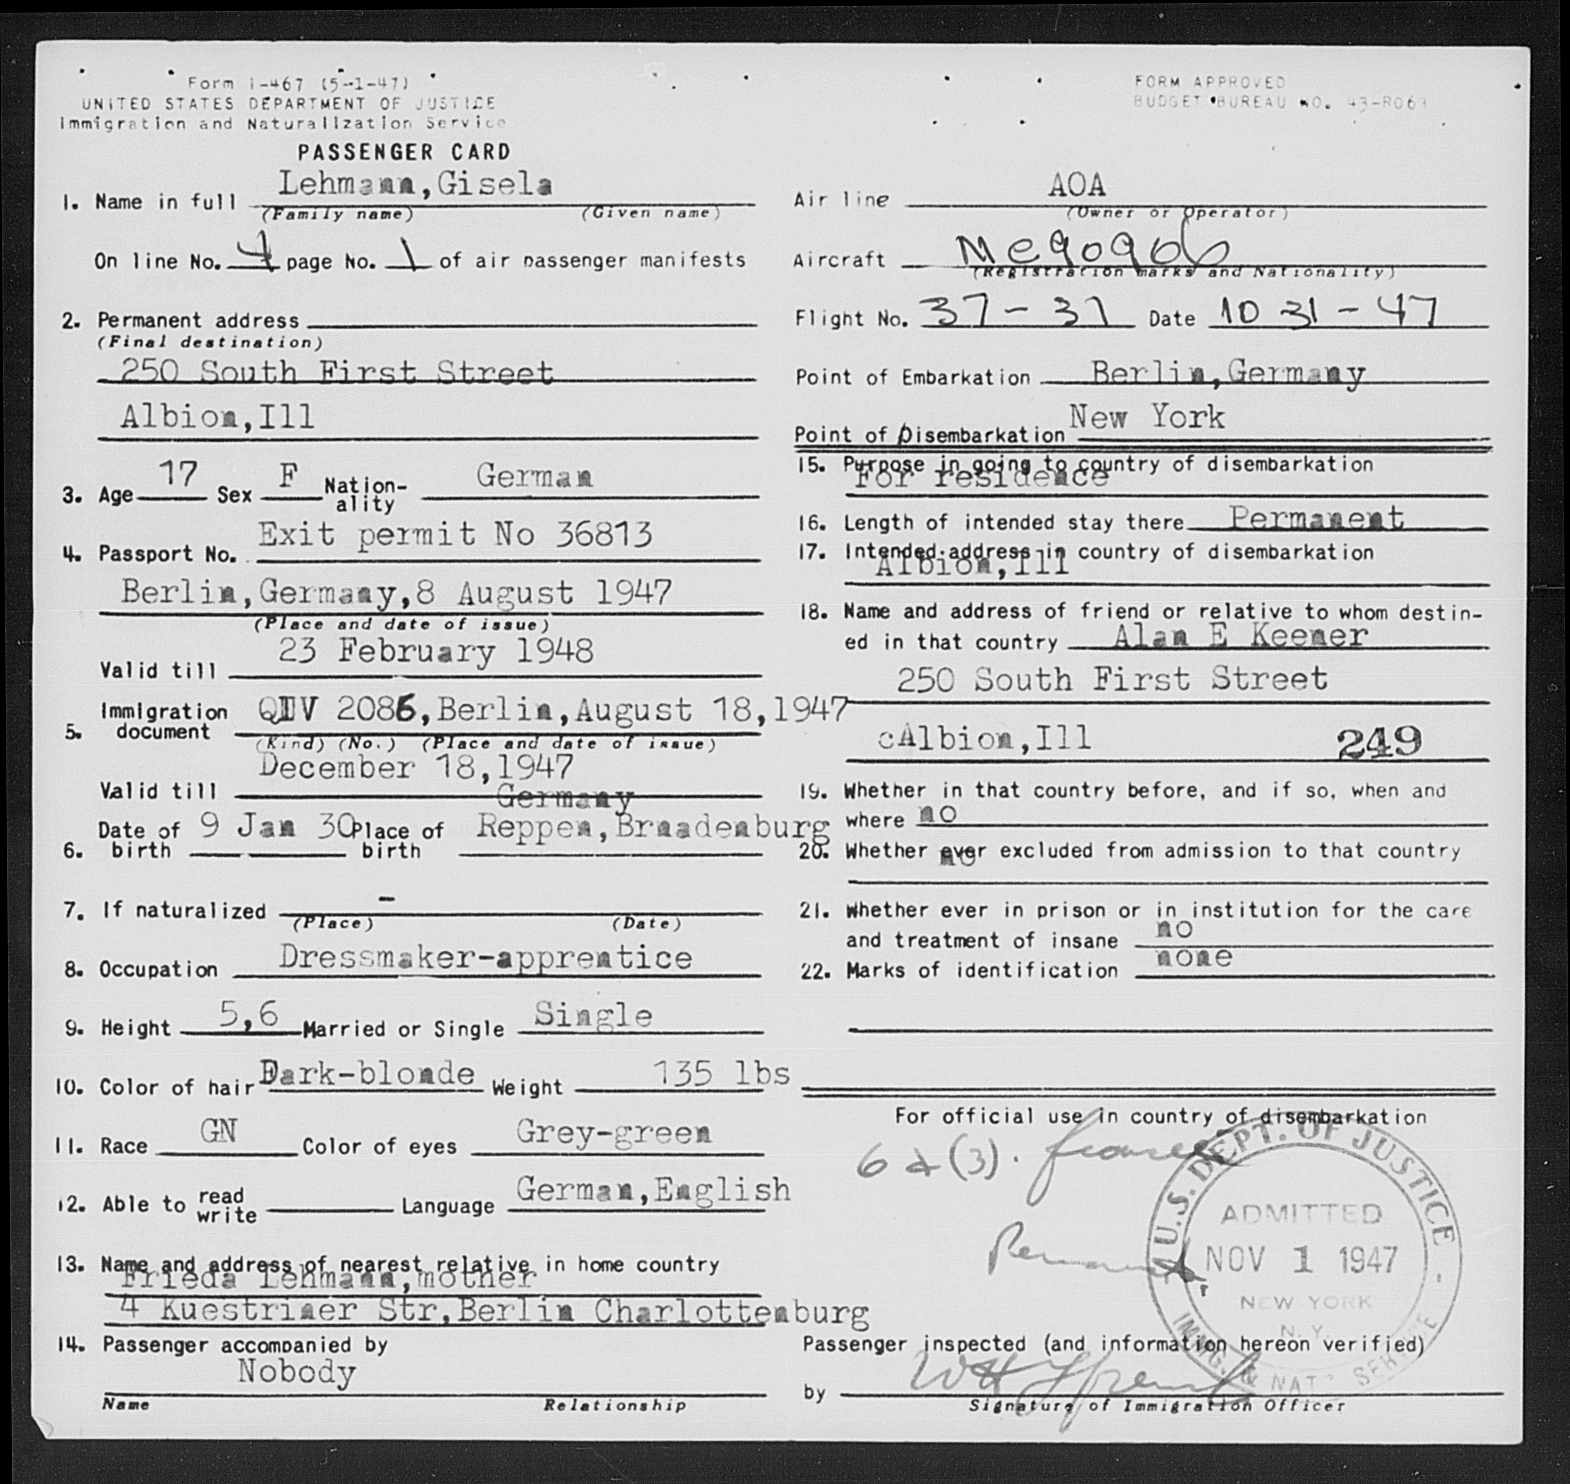 Form I-467 (5-1-47)
UNITED STATES DEPARTMENT OF JUSTICE
Immigration and Naturalization Service
PASSENGER CARD
1. Name in full Lehmann,Gisela
(Family name) (Given name)
On line No. 4 page No. 1 of air passenger manifests
2. Permanent address
(Final destination)
250 South First Street
Albion,Ill
3. Age 17 Sex F Nation-ality German
4. Passport No. Exit permit No 36813
Berlin,Germany,8 August 1947
(Place and date of issue)
Valid till 23 February 1948
5. Immigration document QIV 2086,Berlin,August 18,1947
(Kind) (No.) (Place and date of issue)
Valid till December 18,1947
Germany
6. Date of birth 9 Jan 30 Place of birth Reppen,Brandenburg
7. If naturalized -
(Place) (Date)
8. Occupation Dressmaker-apprentice
9. Height 5,6 Married or Single Single
10. Color of hair Dark-blonde Weight 135 lbs
11. Race GN Color of eyes Grey-green
12. Able to read write Language German,English
13. Name and address of nearest relative in home country
Frieda Lehmann,mother
4 Kuestriner Str,Berlin Charlottenburg
14. Passenger accompanied by
Nobody
Name Relationship
FORM APPROVED
BUDGET BUREAU NO. 43-R063
Air line AOA
(Owner or Operator)
Aircraft NC90906
(Registration marks and Nationality)
Flight No. 37-31 Date 10 31-47
Point of Embarkation Berlin,Germany
Point of Disembarkation New York
15. Purpose in going to country of disembarkation
For residence
16. Length of intended stay there Permanent
17. Intended address in country of disembarkation
Albion,Ill
18. Name and address of friend or relative to whom destin-
ed in that country Alan E Keener
250 South First Street
cAlbion,Ill 249
19. Whether in that country before, and if so, when and
where no
20. Whether ever excluded from admission to that country
no
21. Whether ever in prison or in institution for the care
and treatment of insane no
22. Marks of identification none
For official use in country of disembarkation
6 (3).
U.S. DEPT. OF JUSTICE
ADMITTED
NOV 1 1947
NEW YORK
N.Y.
IMMG. & NAT. SERVICE
Passenger inspected (and information hereon verified)
by
Signature of Immigration Officer